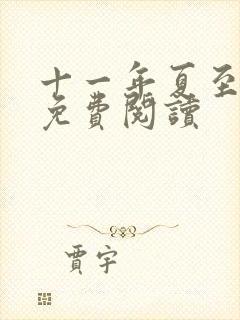 十一年夏至
免費閱讀
賈宇